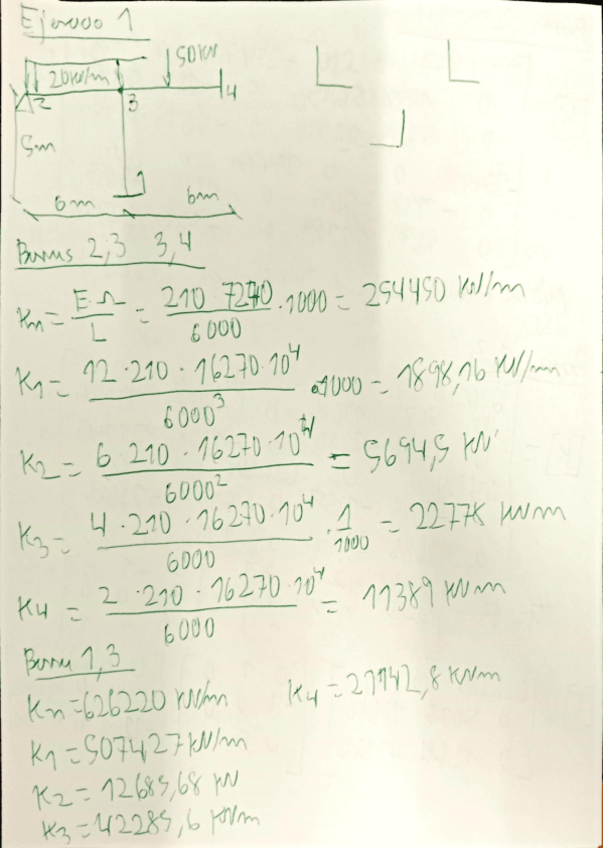 Ejercicio 1
50kN
20kN/m
2
3
4
5m
1
6m 6m
Barras 2,3 3,4
Kn = E·Ω / L = 210·7270 / 6000 ·1000 = 254450 kN/m
K1 = 12·210·16270·10⁴ / 6000³ ·1000 = 1898,16 kN/m
K2 = 6·210·16270·10⁴ / 6000² = 5694,5 kN
K3 = 4·210·16270·10⁴ / 6000 · 1/1000 = 22778 kNm
K4 = 2·210·16270·10⁴ / 6000 = 11389 kNm
Barra 1,3
Kn = 626220 kN/m K4 = 21142,8 kNm
K1 = 5074,27 kN/m
K2 = 12685,68 kN
K3 = 42285,6 kNm